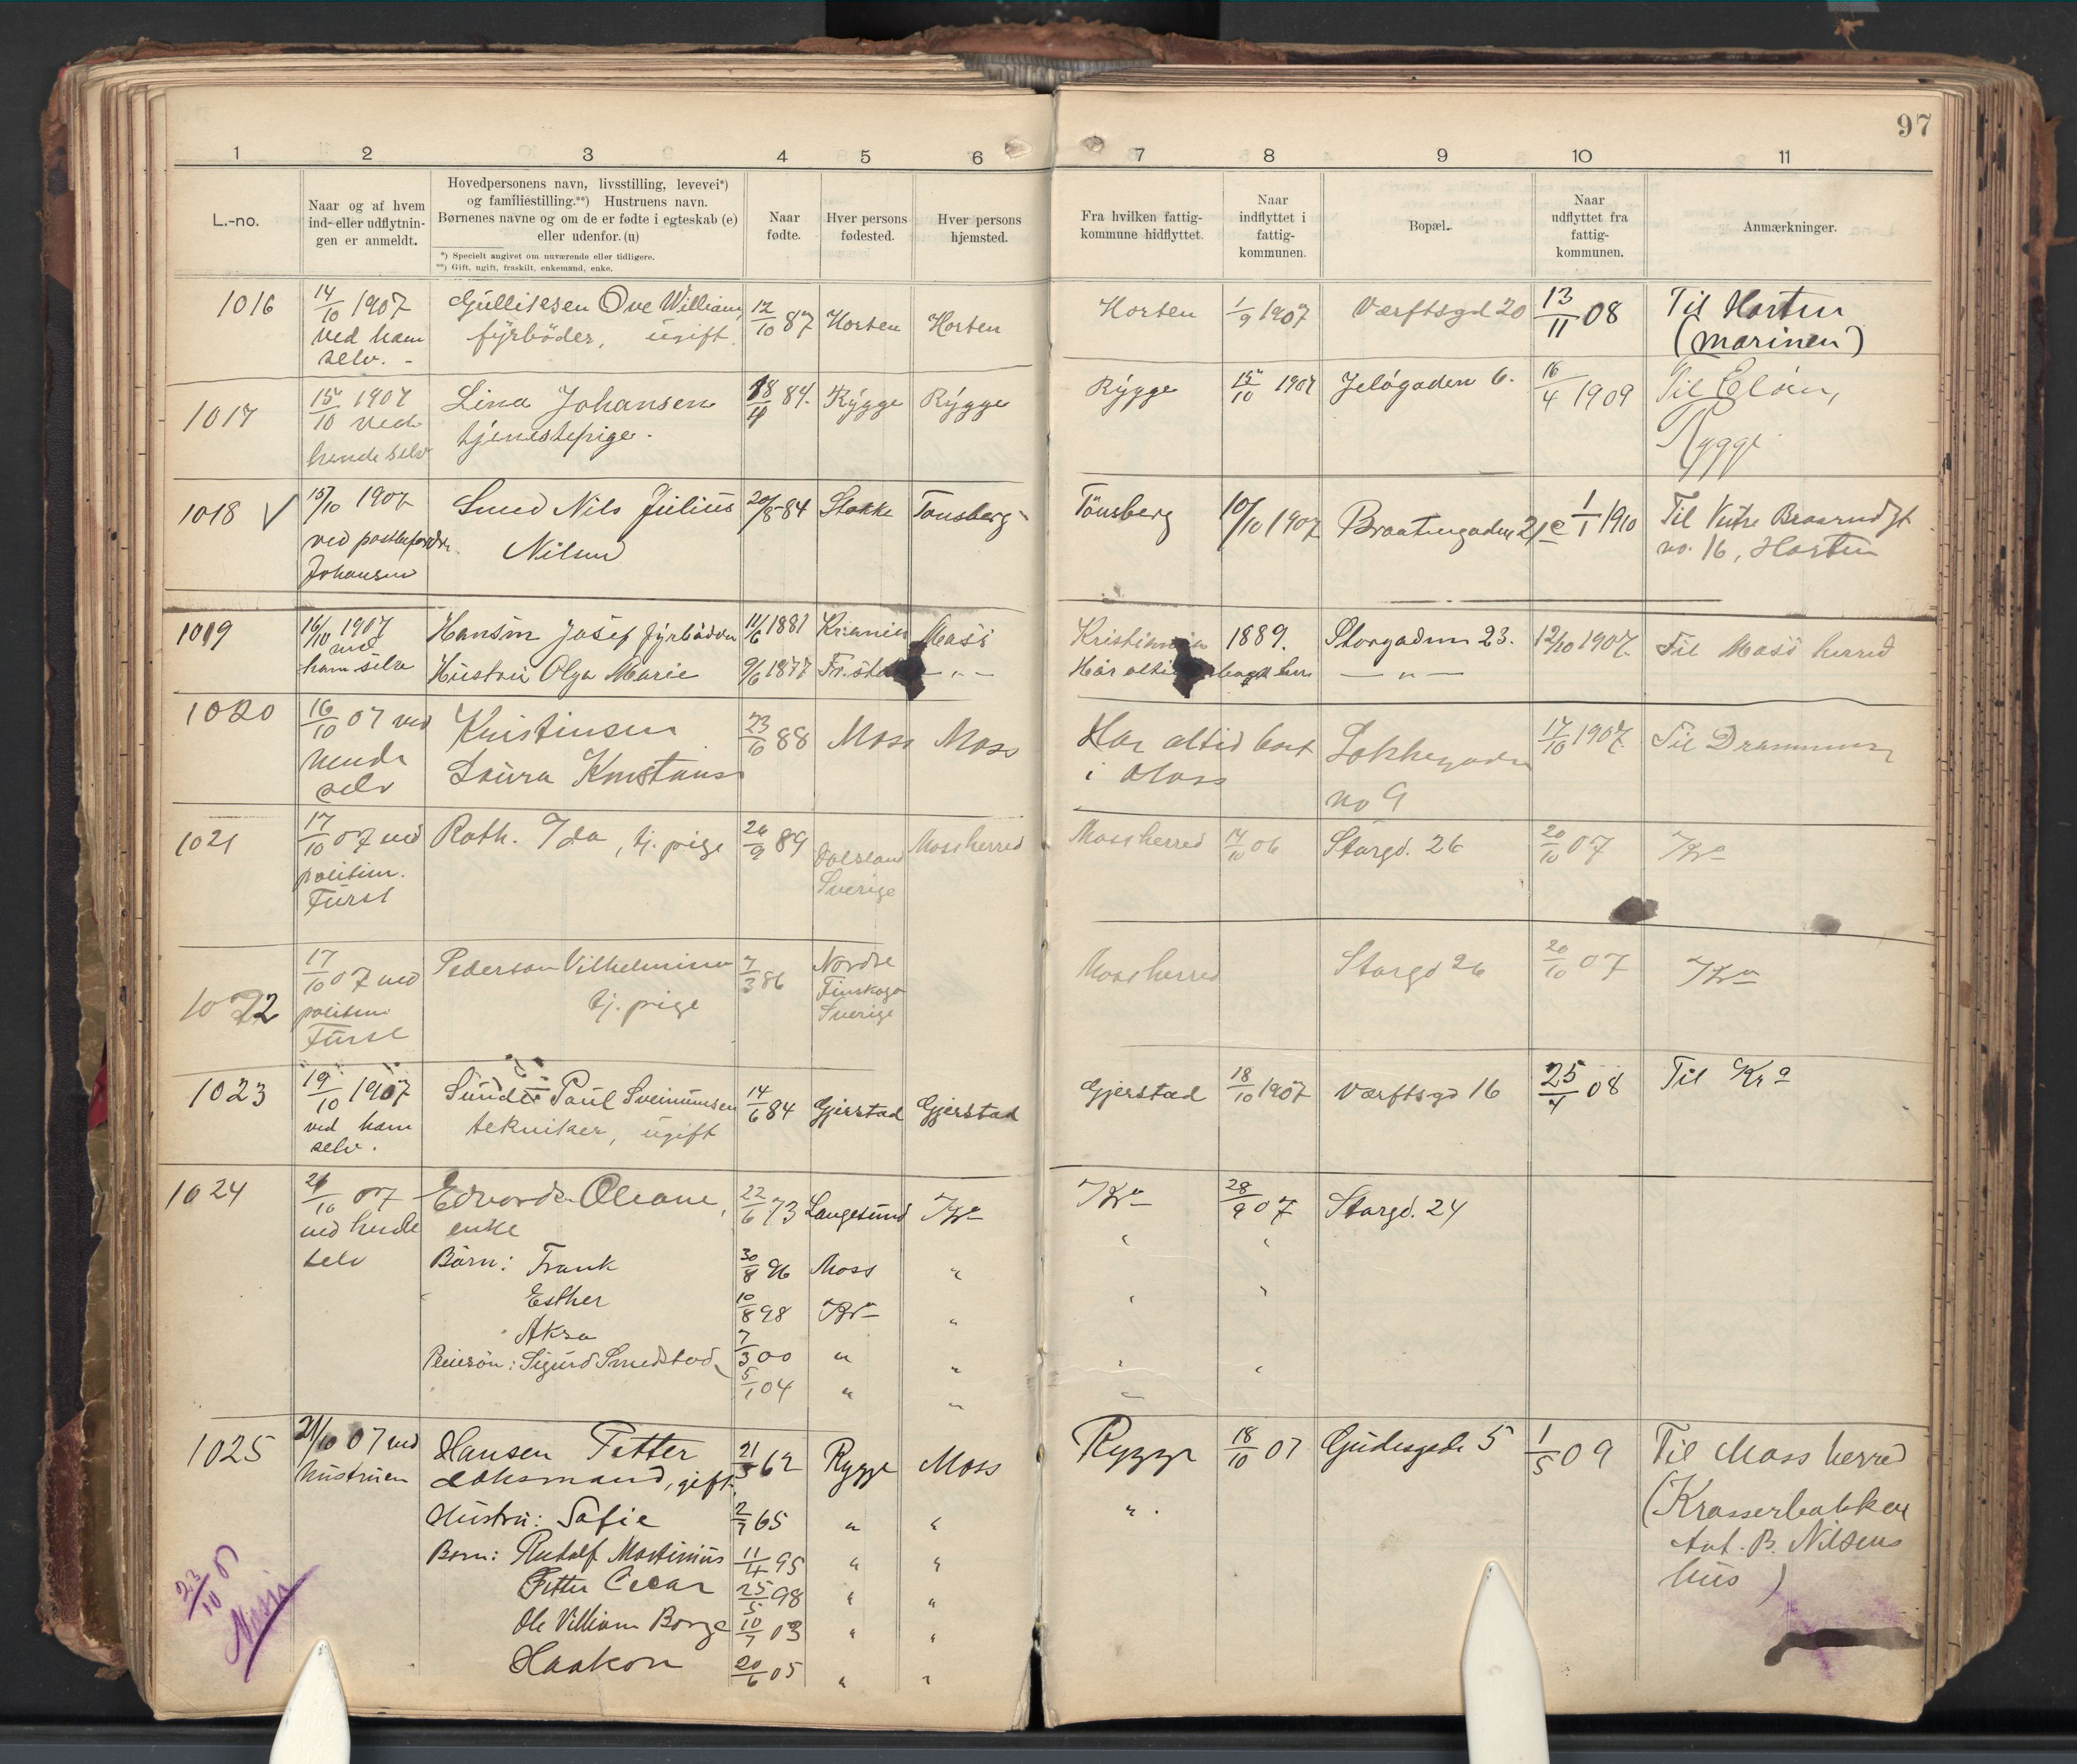 97
1 2 3 4 5 6 7 8 9 10 11
L.-no.
Naar og af hvem
ind- eller udflytnin-
gen er anmeldt.
Hovedpersonens navn, livsstilling, levevei*)
og familiestilling.**) Hustruens navn.
Børnenes navne og om de er fødte i egteskab (e)
eller udenfor. (u)
*) Specielt angivet om nuværende eller tidligere.
**) Gift, ugift, fraskilt, enkemand, enke.
Naar
fødte.
Hver persons
fødested.
Hver persons
hjemsted.
Fra hvilken fattig-
kommune hidflyttet.
Naar
indflyttet i
fattig-
kommunen.
Bopæl.
Naar
udflyttet fra
fattig-
kommunen.
Anmærkninger.
1016 14/10 1907 Gullitsen Ove William, 12/10 87 Horten Horten Horten 1/9 1907 Værftsgd 20 13/11 08 Til Horten
ved ham fyrbøder, ugift. (marinen)
selv. -
1017 15/10 1907 Lina Johansen 18/4 84. Rygge Rygge Rygge 15/10 1907 Jeløgaden 6. 16/4 1909 Til Eløen,
ved tjenestepige. Rygge
hende selv
1018 ✓ 15/10 1907 Nils Julius 20/8 84 Stokke Tønsberg Tønsberg 10/10 1907 Braatengaden 21e 1/1 1910 Til
ved Nilsen no. 16, Horten
Johansen
1019 16/10 1907 Hansen Josef fyrbøder 11/6 1881 Kr.ania Moss 1889. Storgaden 23. 12/10 1907. Til Moss herred
ved
ham selv Hustru Olga Marie 9/6 1877 — „ — Har — „ —
1020 16/10 07 ved Kristinsen 23/6 88 Moss Moss Har altid boet Løkkegaden 17/10 1907. Til Drammen
hende Laura Konstanse i Moss no 9
selv
1021 17/10 07 ved Roth. Ida, tj. pige 26/9 89 Dalsland Moss herred Moss herred 14/10 06 Storgd. 26 20/10 07 Kra
politim. Sverige
Fürst
1022 17/10 07 ved Pederson Vilhelmina 7/3 86 Nordre Moss herred Storgd 26 20/10 07 Kra
politim. tj. pige Finskoga
Fürst Sverige
1023 19/10 1907 Sunde Paul Sveinunsen 14/6 84 Gjerstad Gjerstad Gjerstad 18/10 1907 Værftsgd 16 25/4 08 Til Kra
ved ham tekniker, ugift
selv.
1024 21/10 07 Edvards Oleane, 22/6 73 Langesund Kra Kra 28/9 07 Storgd. 24
ved hende enke
selv Børn: Frank 30/8 96 Moss "
Esther 10/8 98 Kra "
Aksa 7/3 00 " "
Pleiesøn: Sigurd Smedstad 5/1 04 " "
1025 21/10 07 ved Hansen Petter 21/3 62 Rygge Moss Rygge 18/10 07 Gudesgade 5 1/5 09 Til Moss herred
hustruen gift. (Krosserbakken
Hustru: Sofie 2/7 65 " " " Ant. B. Nilsens
Børn: Rudolf Martinius 11/4 95 " " hus)
Petter Oscar 25/5 98 " "
Ole Villiam Borge 10/7 03 " "
Haakon 20/6 05 " "
23/10